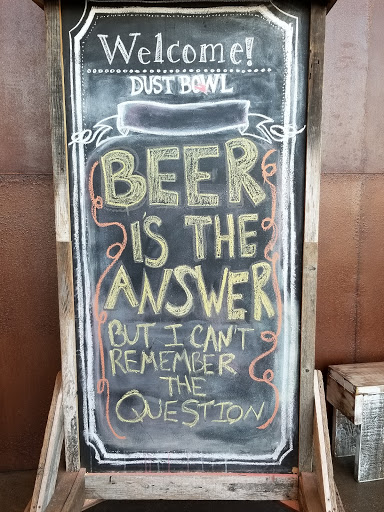 Welcome!
DUST BOWL
BEER
IS THE
ANSWER
BUT I CAN'T
REMEMBER
THE
QUESTION